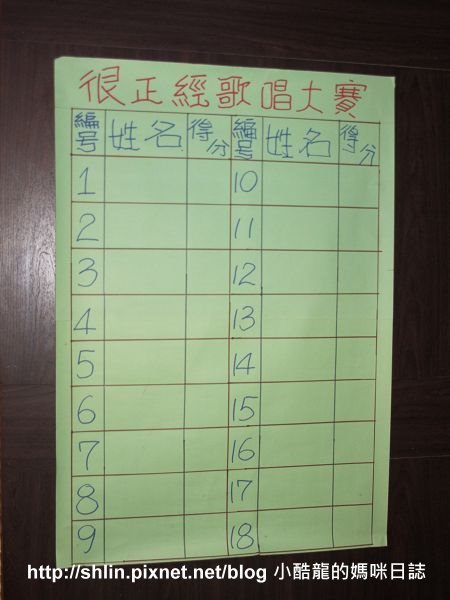 很正經歌唱大賽
編号 姓名 得分 編号 姓名 得分
1 10
2 11
3 12
4 13
5 14
6 15
7 16
8 17
9 18
http://shlin.pixnet.net/blog 小酷龍的媽咪日誌